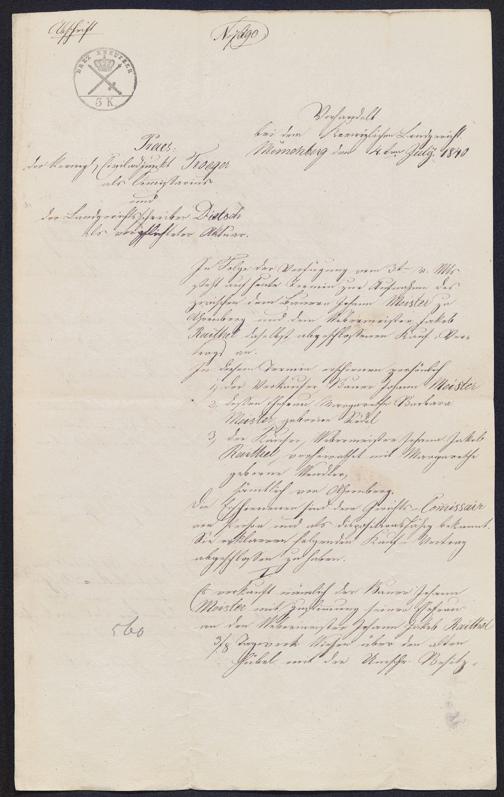 Abschrift
DREI KREUZER
3 K
Verhandelt
bei dem Koeniglichen Landgericht
Münchberg den 4ten July 1840
Praes.
der koenigl. Civiladjunkt Troeger
als Comissarius
und
der Landgerichtsschreiber Dietsch
als verpflichteter Aktuar.
In Folge der Verfügung vom v. Mts
steht auf heute Termin zur Aufnahme des
zwischen dem Bauern Johann Meister zu
und dem Webermeister Jakob
Raithel daselbst abgeschlossenen Kauf-Ver-
trags an.
In diesem Termin erschienen persönlich
1, der Verkäufer Bauer Johann Meister
2, dessen Ehefrau Margaretha Barbara
Meister, geborne
3, der Käufer, Webermeister Johann Jakob
Raithel, verheirathet mit Margaretha
geborne
sämtlich von
Die Erschienenen sind dem Gerichts-Comissair
von Person und als dispositionsfähig bekannt.
Sie erklären folgenden Kauf-Vertrag
abgeschlossen zu haben.
I
Es verkauft nämlich der Bauer Johann
Meister mit Zustimmung seiner Ehefrau
an den Webermeister Johann Jakob Raithel
3/8 Tagwerk über den alten
mit der Besitz
560